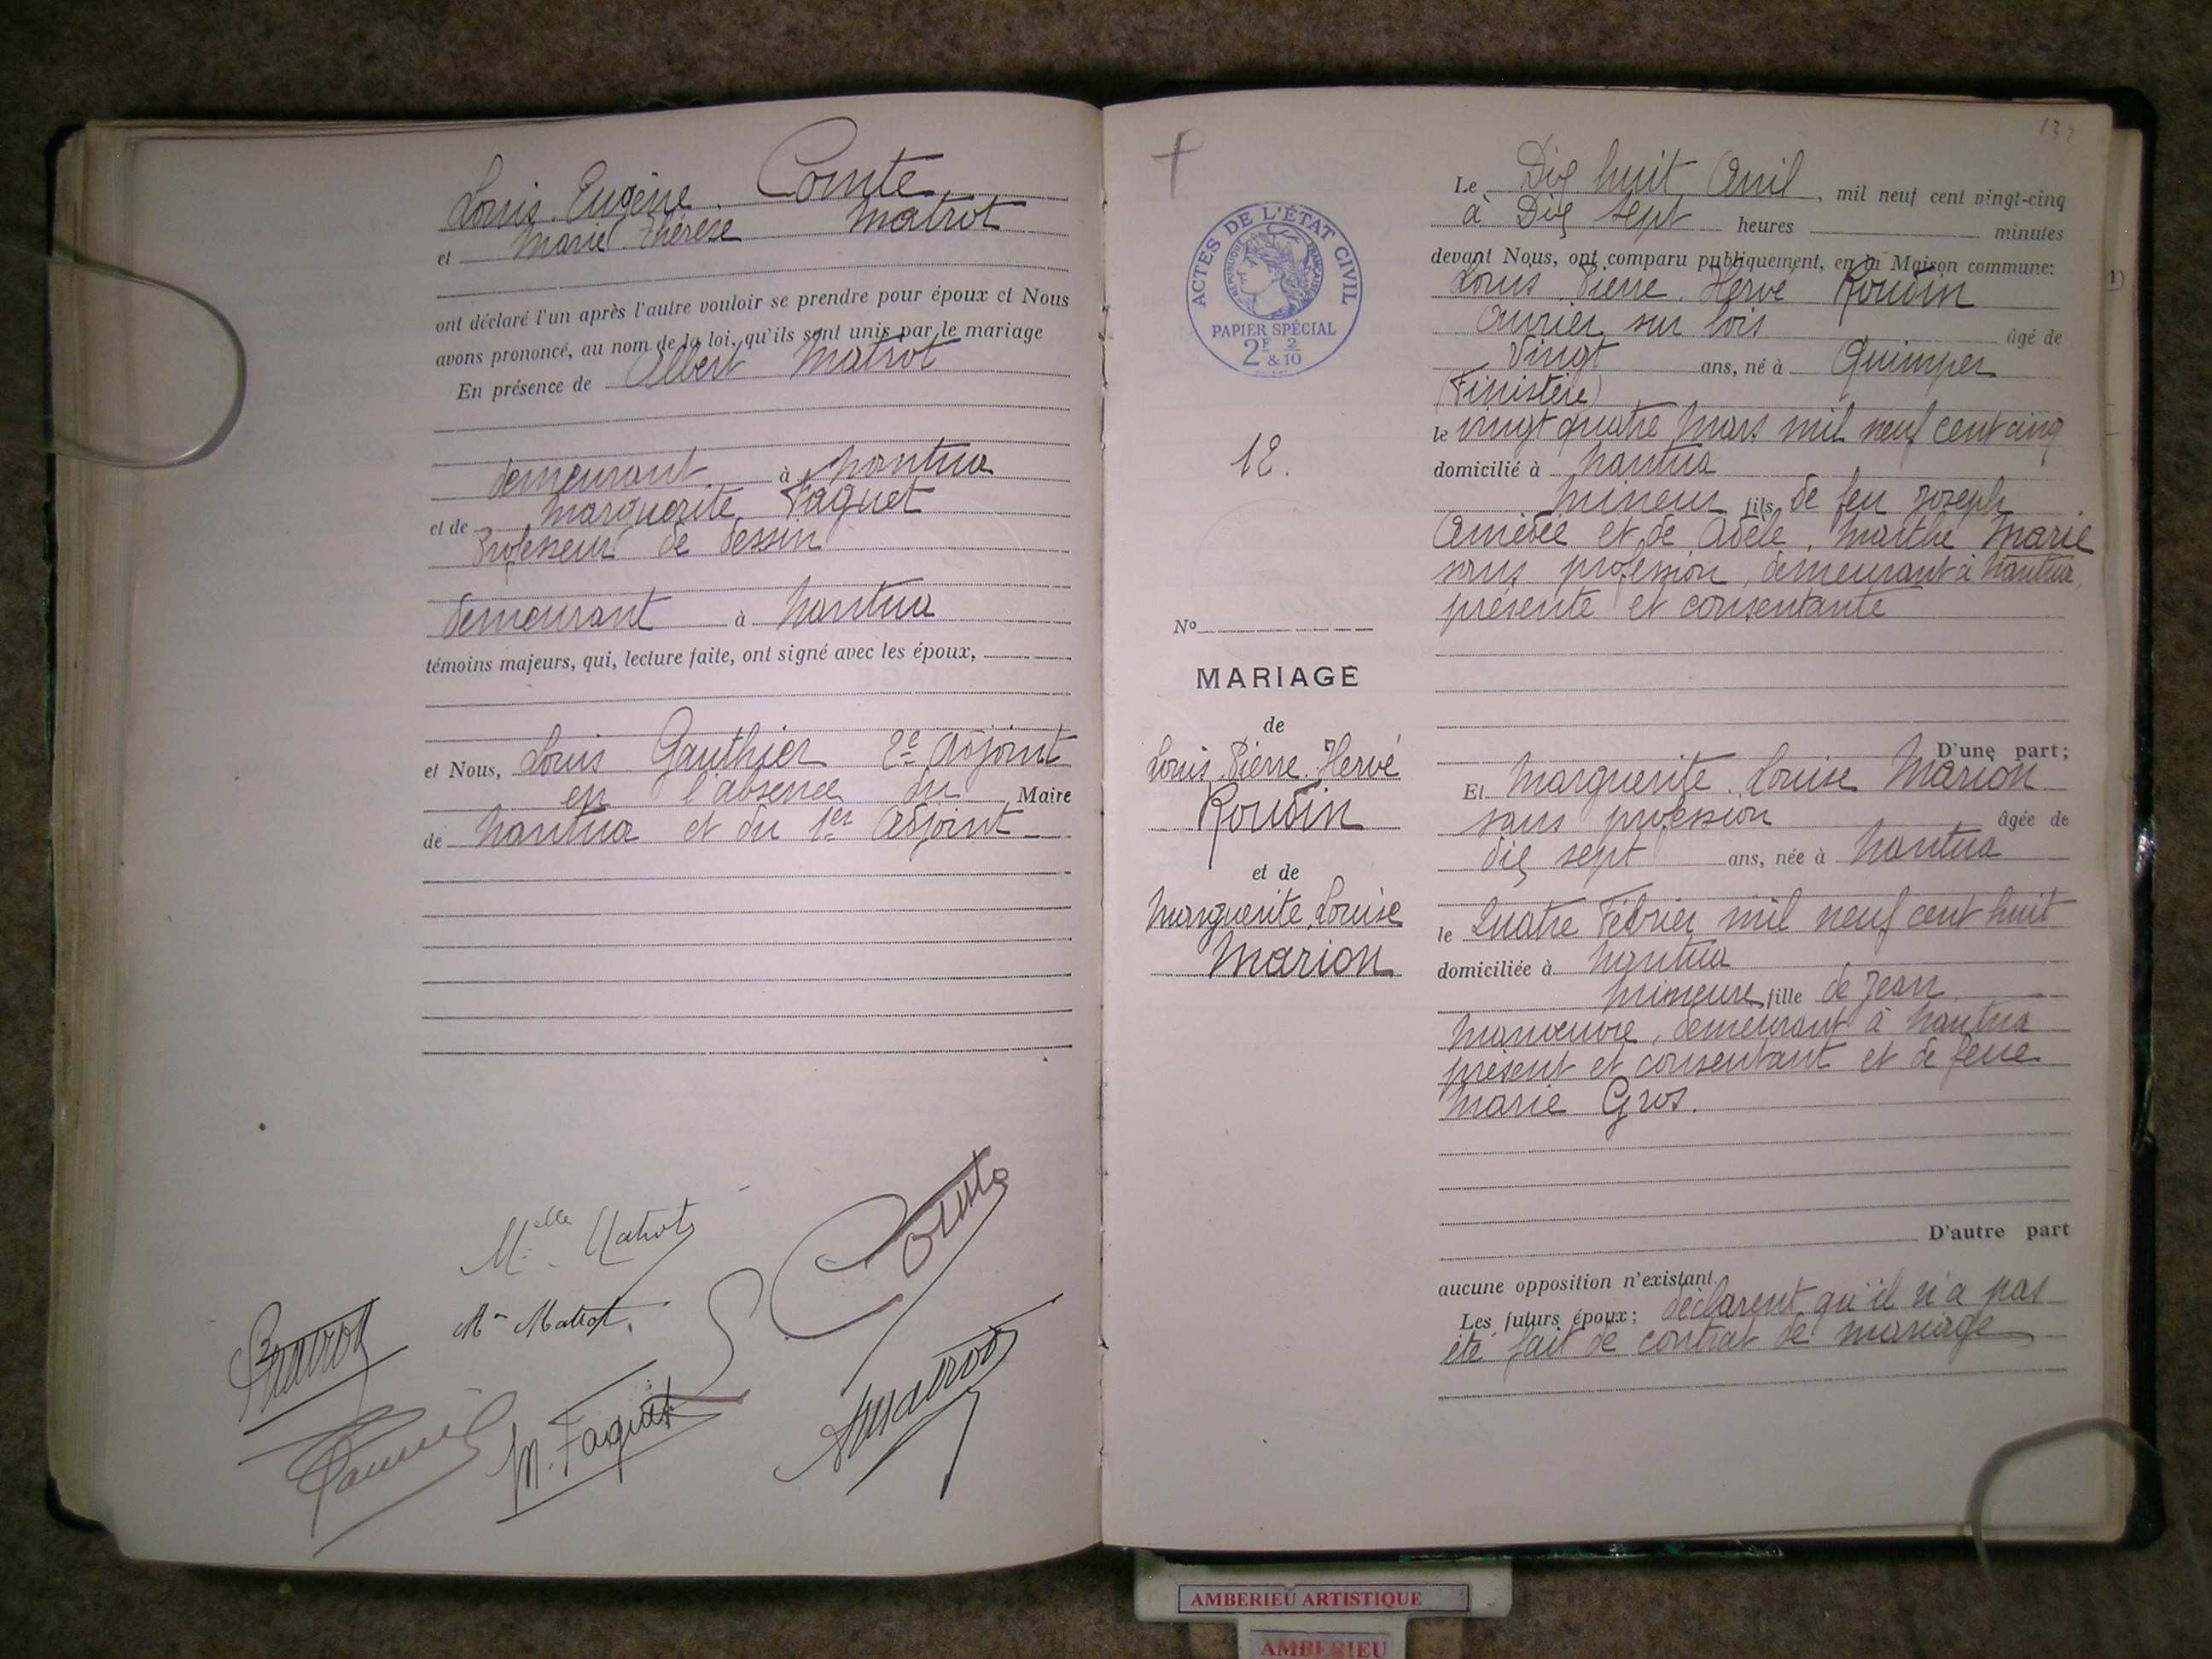 Louis. Eugène. Comte
et Marie Thérèse Matrot
ont déclaré l'un après l'autre vouloir se prendre pour époux et Nous
avons prononcé, au nom de la loi, qu'ils sont unis par le mariage
En présence de Albert Matrot
demeurant à Nantua
et de Marguerite Faguet
Professeur de dessin
demeurant à Nantua
témoins majeurs, qui, lecture faite, ont signé avec les époux,
et Nous, Louis Gauthier 2e Adjoint
en l'absence du Maire
de Nantua et du 1er Adjoint
Melle Matrot
Comte
Me Matrot
M. Faguet
132
Le Dix huit Avril, mil neuf cent vingt-cinq
à Dix sept heures minutes
devant Nous, ont comparu publiquement, en la Maison commune:
Louis Pierre Hervé Roudin
Ouvrier sur bois âgé de
Vingt ans, né à Quimper
(Finistère)
le vingt quatre Mars mil neuf cent cinq
domicilié à Nantua
Mineur fils de feu Joseph
Amédée et de Adèle, Marthe Marie
sans profession, demeurant à Nantua,
présente et consentante
D'une part;
Et Marguerite Louise Marion
sans profession âgée de
dix sept ans, née à Nantua
le Quatre Février mil neuf cent huit
domiciliée à Nantua
Mineure fille de Jean
Manœuvre, demeurant à Nantua
présent et consentant et de feue
Marie Gros.
D'autre part
aucune opposition n'existant.
Les futurs époux; déclarent qu'il n'a pas
été fait de contrat de mariage
ACTES DE L'ÉTAT CIVIL
RÉPUBLIQUE FRANÇAISE
PAPIER SPÉCIAL
2F 2 & 10
12.
No
MARIAGE
de
Louis Pierre Hervé
Roudin
et de
Marguerite Louise
Marion
AMBERIEU ARTISTIQUE
AMBERIEU